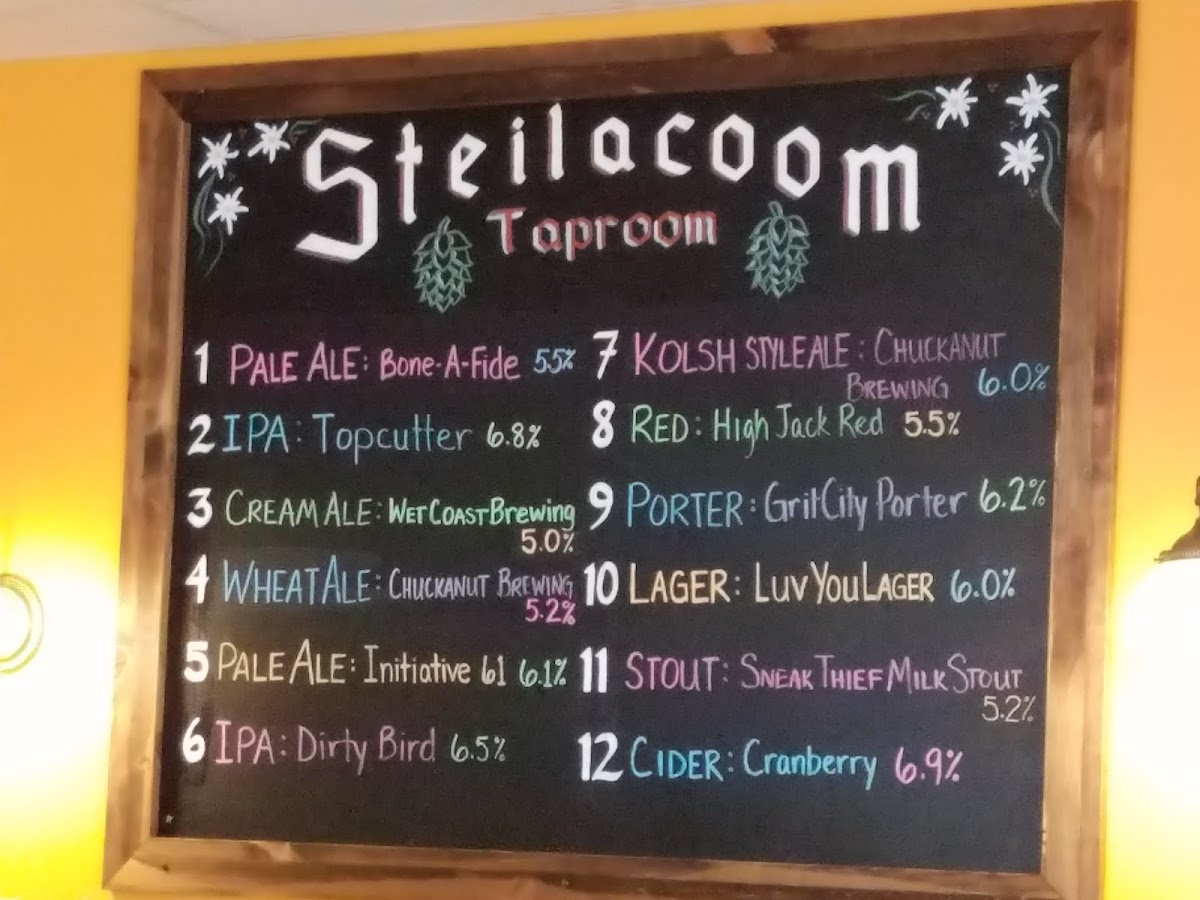 Steilacoom
Taproom
1 PALE ALE: Bone-A-Fide 5.5%
2 IPA: Topcutter 6.8%
3 CREAM ALE: WET COAST Brewing
5.0%
4 WHEAT ALE: CHUCKANUT BREWING
5.2%
5 PALE ALE: Initiative 61 6.1%
6 IPA: Dirty Bird 6.5%
7 KOLSH STYLE ALE: CHUCKANUT
BREWING 6.0%
8 RED: High Jack Red 5.5%
9 PORTER: Grit City Porter 6.2%
10 LAGER: LUV YOU LAGER 6.0%
11 STOUT: SNEAK THIEF MILK STOUT
5.2%
12 CIDER: Cranberry 6.9%